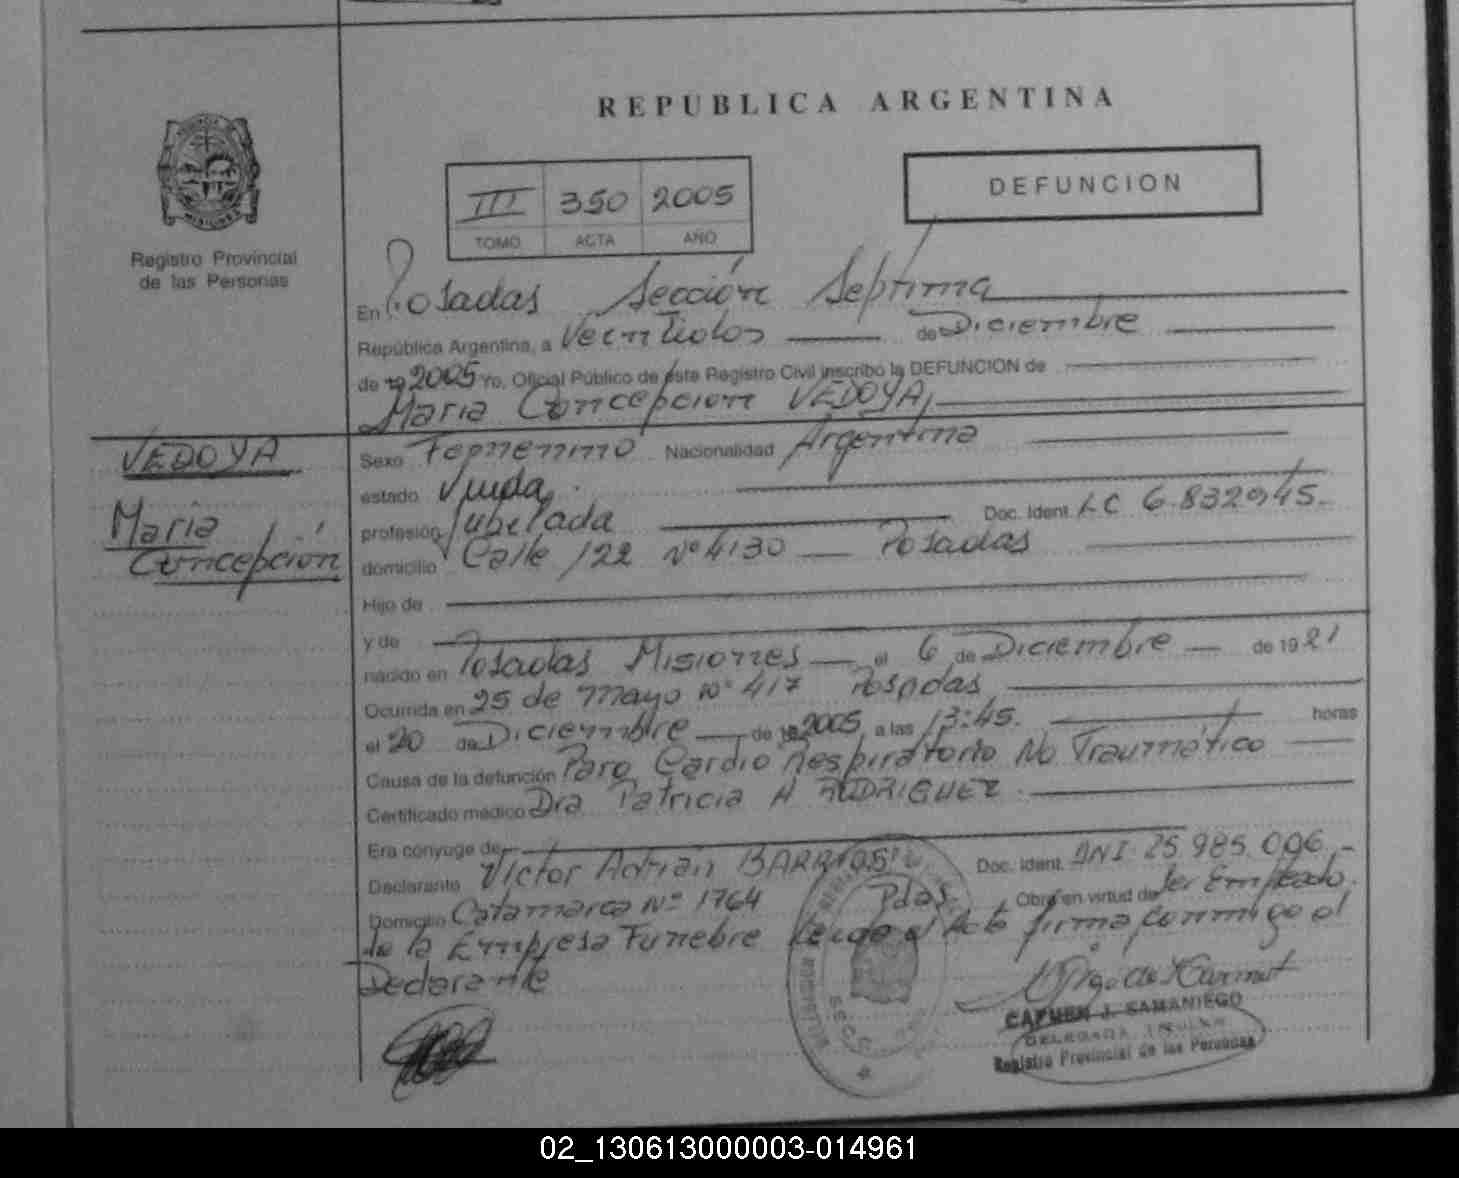 REPUBLICA ARGENTINA
III 350 2005
TOMO ACTA AÑO
DEFUNCION
Registro Provincial
de las Personas
En Posadas Sección Septima
República Argentina, a Veintidos de Diciembre
de 19 2005 Yo, Oficial Público de este Registro Civil inscribo la DEFUNCION de
Maria Concepcion VEDOYA,
VEDOYA
Maria
Concepción
Sexo Femenino Nacionalidad Argentina
estado Viuda
profesión Jubilada Doc. Ident. LC 6.832945.
domicilio Calle 122 Nº 4130 Posadas
Hijo de
y de
nacido en Posadas Misiones el 6 de Diciembre de 1921
Ocurrida en 25 de Mayo Nº 417 Posadas
el 20 de Diciembre de 19 2005, a las 13:45. horas
Causa de la defunción Paro Cardio Respiratorio No Traumático
Certificado médico Dra Patricia A RODRIGUEZ
Era cónyuge de
Declarante Victor Adrián BARRIOS Doc. Ident. DNI 25.985.006.-
Domicilio Catamarca Nº 1764 Pdas Obra en virtud de Ser Empleado
de la Empresa Funebre Leida el Acta firma conmigo el
Declarante
CARMEN J. SAMANIEGO
DELEGADA
Registro Provincial de las Personas
02_130613000003-014961